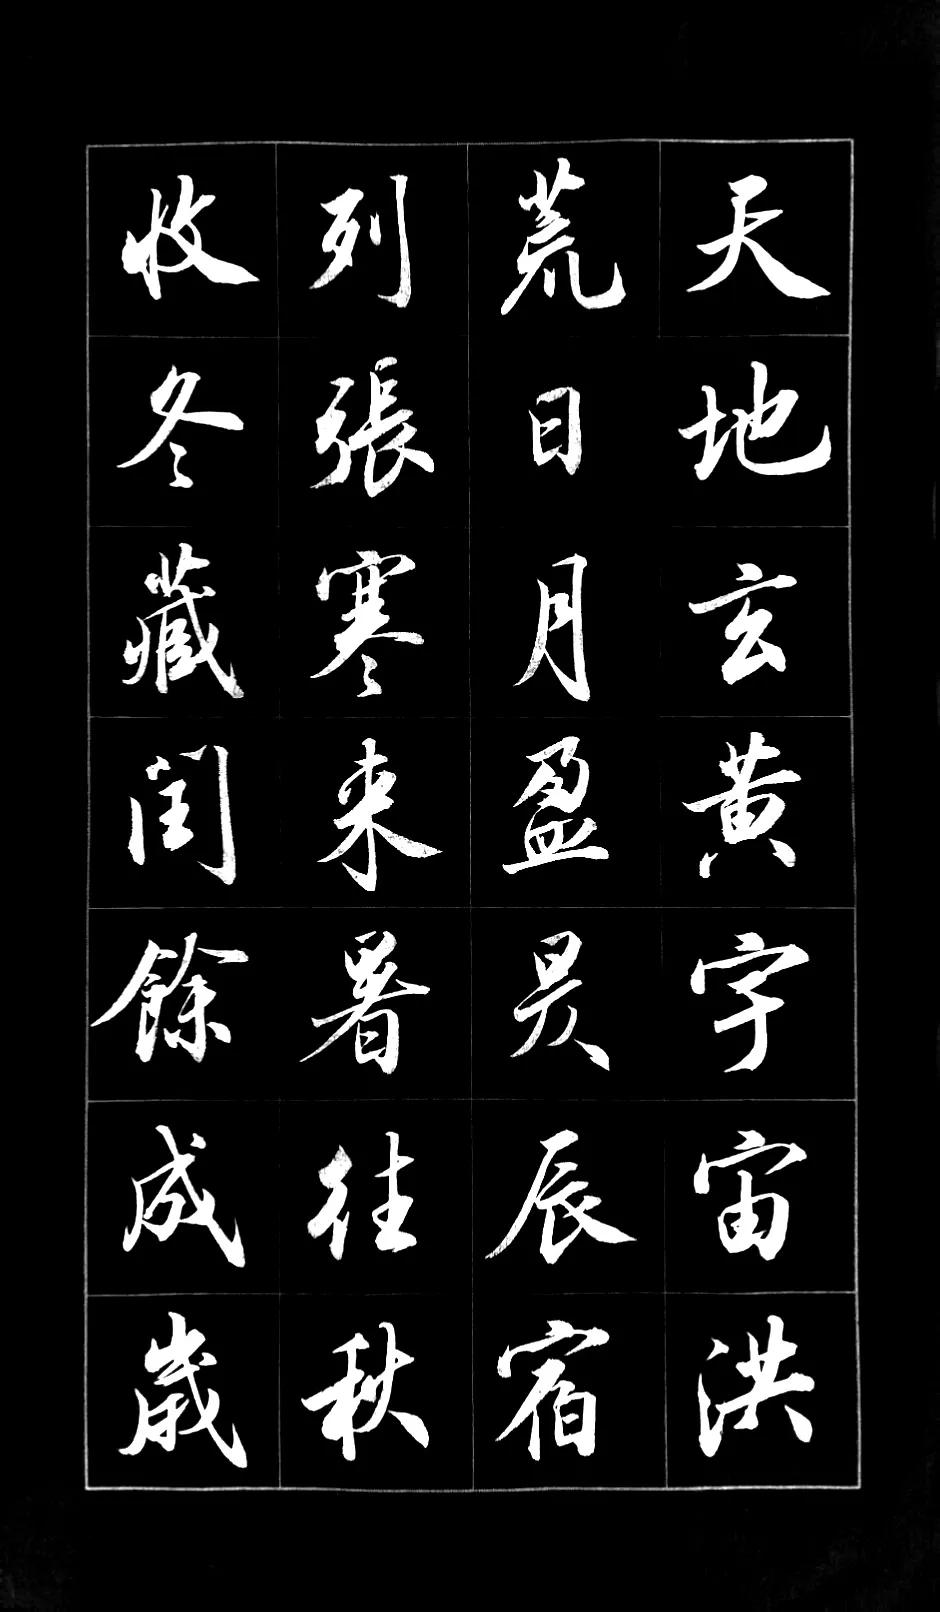 天地玄黄宇宙洪
荒日月盈昃辰宿
列張寒来暑往秋
收冬藏閏餘成歲